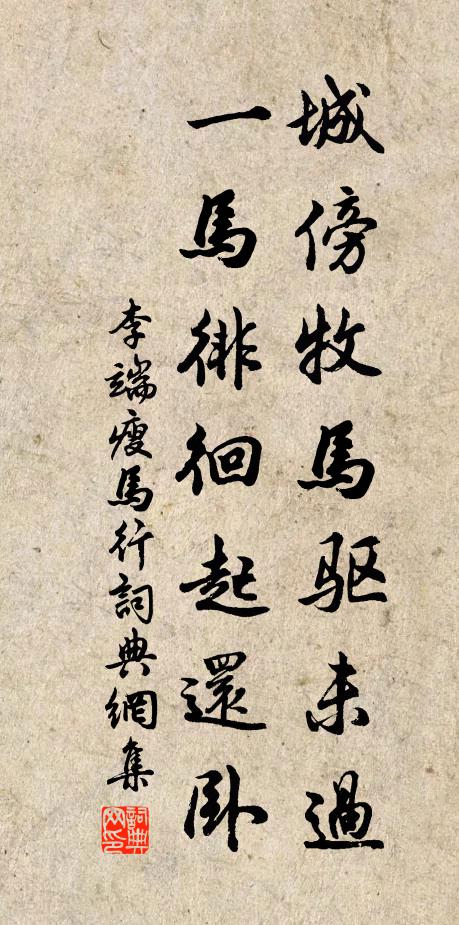 城傍牧馬驱未過
一馬徘徊起還卧
李端瘦馬行詞典網集
詞典
网印